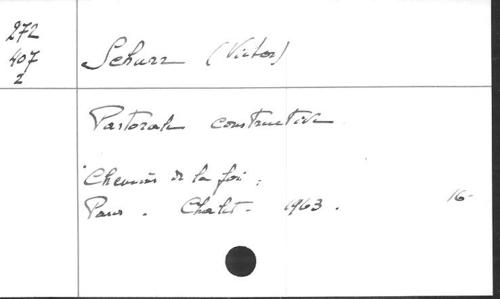 272
407
2
Schurr (Victor)
Pastorale constructive
"Chemins de la foi"
Paris. Chalet. 1963.
16-